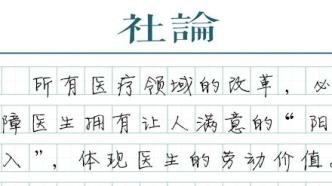 社論
所有医疗领域的改革，必
障医生拥有让人满意的“阳
入”，体现医生的劳动价值。